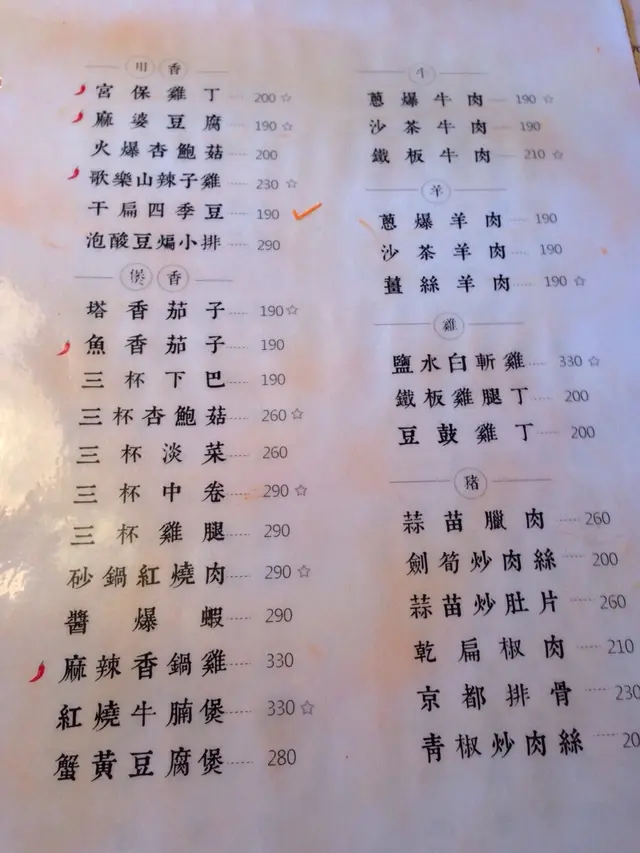 川香
宮保雞丁 200☆
麻婆豆腐 190☆
火爆杏鮑菇 200
歌樂山辣子雞 230☆
干扁四季豆 190
泡酸豆煸小排 290
煲香
塔香茄子 190☆
魚香茄子 190
三杯下巴 190
三杯杏鮑菇 260☆
三杯淡菜 260
三杯中卷 290☆
三杯雞腿 290
砂鍋紅燒肉 290☆
醬爆蝦 290
麻辣香鍋雞 330
紅燒牛腩煲 330☆
蟹黃豆腐煲 280
牛
蔥爆牛肉 190☆
沙茶牛肉 190
鐵板牛肉 210☆
羊
蔥爆羊肉 190
沙茶羊肉 190
薑絲羊肉 190☆
雞
鹽水白斬雞 330☆
鐵板雞腿丁 200
豆鼓雞丁 200
豬
蒜苗臘肉 260
劍筍炒肉絲 200
蒜苗炒肚片 260
乾扁椒肉 210
京都排骨 230
青椒炒肉絲 20